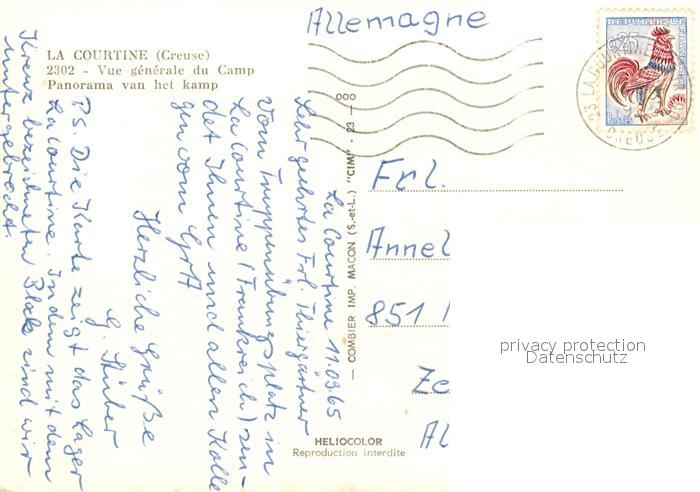 Allemagne
REPUBLIQUE FRANÇAISE
0,25
POSTES
LA COURTINE
CREUSE
LA COURTINE (Creuse)
2302 - Vue générale du Camp
Panorama van het kamp
La Courtine 11.03.65
Sehr geehrtes Frl. Thiergärtner
Vom Truppenübungsplatz in
La Courtine (Frankreich) sen-
det Ihnen und allen Kolle
gen vom
Herzliche Grüße
G. Stüber
P.S. Die Karte zeigt das Lager
La Courtine. In dem mit dem
Kreuz bezeichneten Block sind wir
untergebracht.
— COMBIER IMP. MACON (S.-et-L.) "CIM" - 23 — 000
HELIOCOLOR
Reproduction interdite
Frl.
Annel
851
Ze
Al
privacy protection
Datenschutz